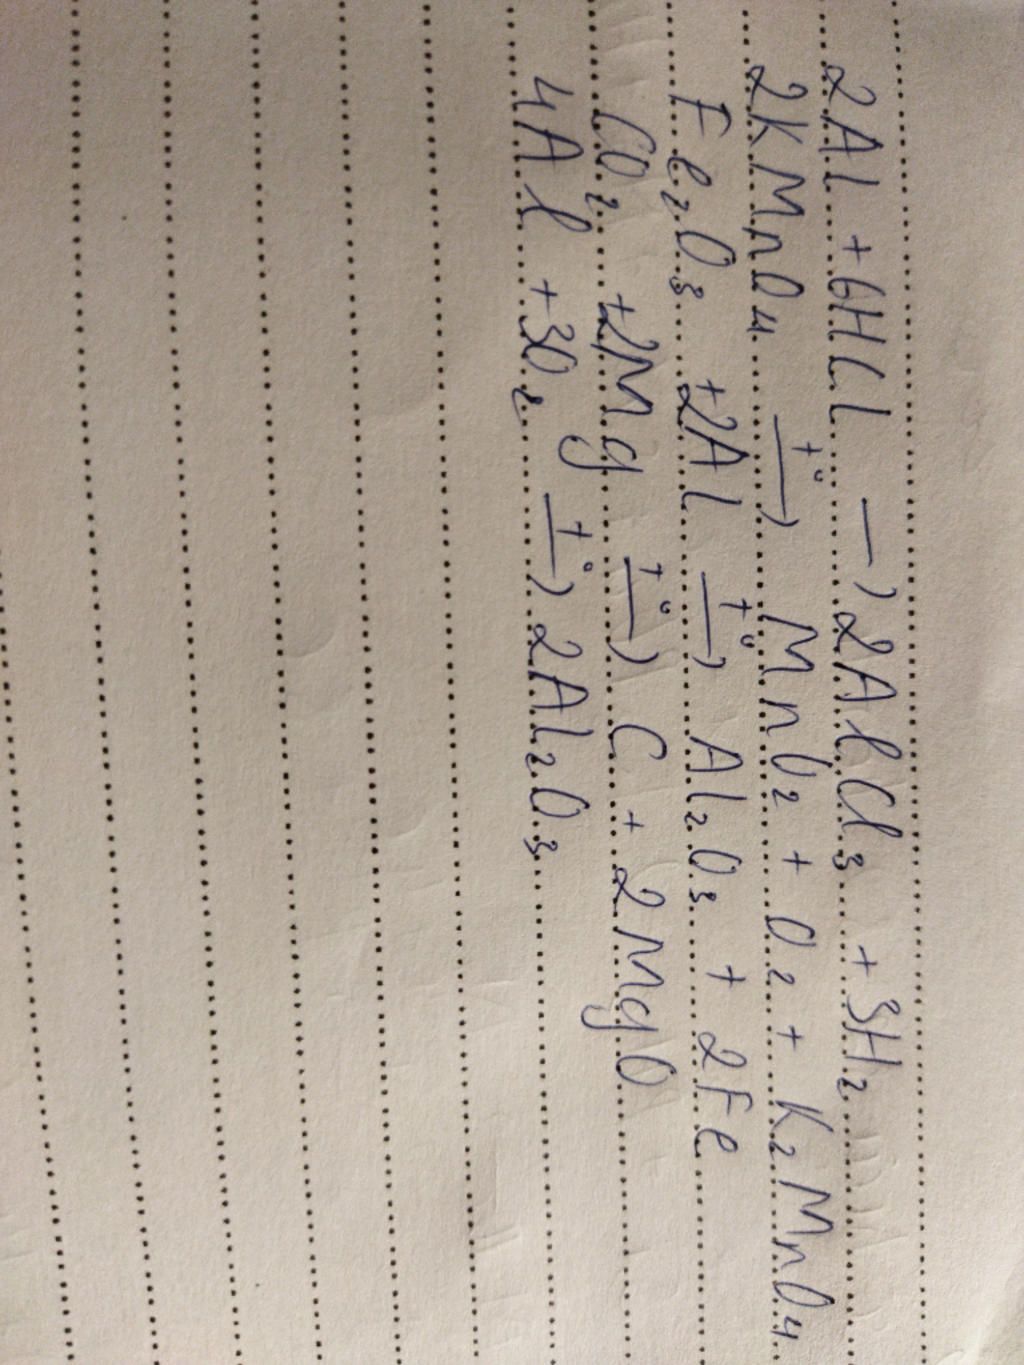 2Al + 6HCl → 2AlCl₃ + 3H₂
2KMnO₄ →t° MnO₂ + O₂ + K₂MnO₄
Fe₂O₃ + 2Al →t° Al₂O₃ + 2Fe
CO₂ + 2Mg →t° C + 2MgO
4Al + 3O₂ →t° 2Al₂O₃